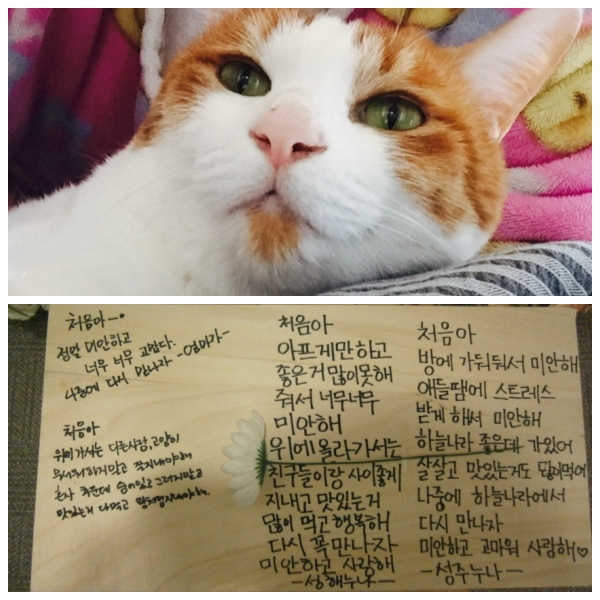 처음아~
정말 미안하고
너무 너무 고맙다.
나중에 다시 만나자 -엄마가-
처음아
위에가서는 다른사람,고양이
무서워하지말고 잘지내야해
혼자 추운데 숨어있고 그러지말고
맛있는거 다먹고 잘지내야해.
처음아
아프게만하고
좋은거 많이못해
줘서 너무너무
미안해
위에 올라가서는
친구들이랑 사이좋게
지내고 맛있는거
많이 먹고 행복해
다시 꼭 만나자
미안하고 사랑해
-성해누나-
처음아
방에 가둬둬서 미안해
애들땜에 스트레스
받게 해서 미안해
하늘나라 좋은데 가있어
살살고 맛있는거도 많이먹어
나중에 하늘나라에서
다시 만나자
미안하고 고마워 사랑해♡
-성주누나-